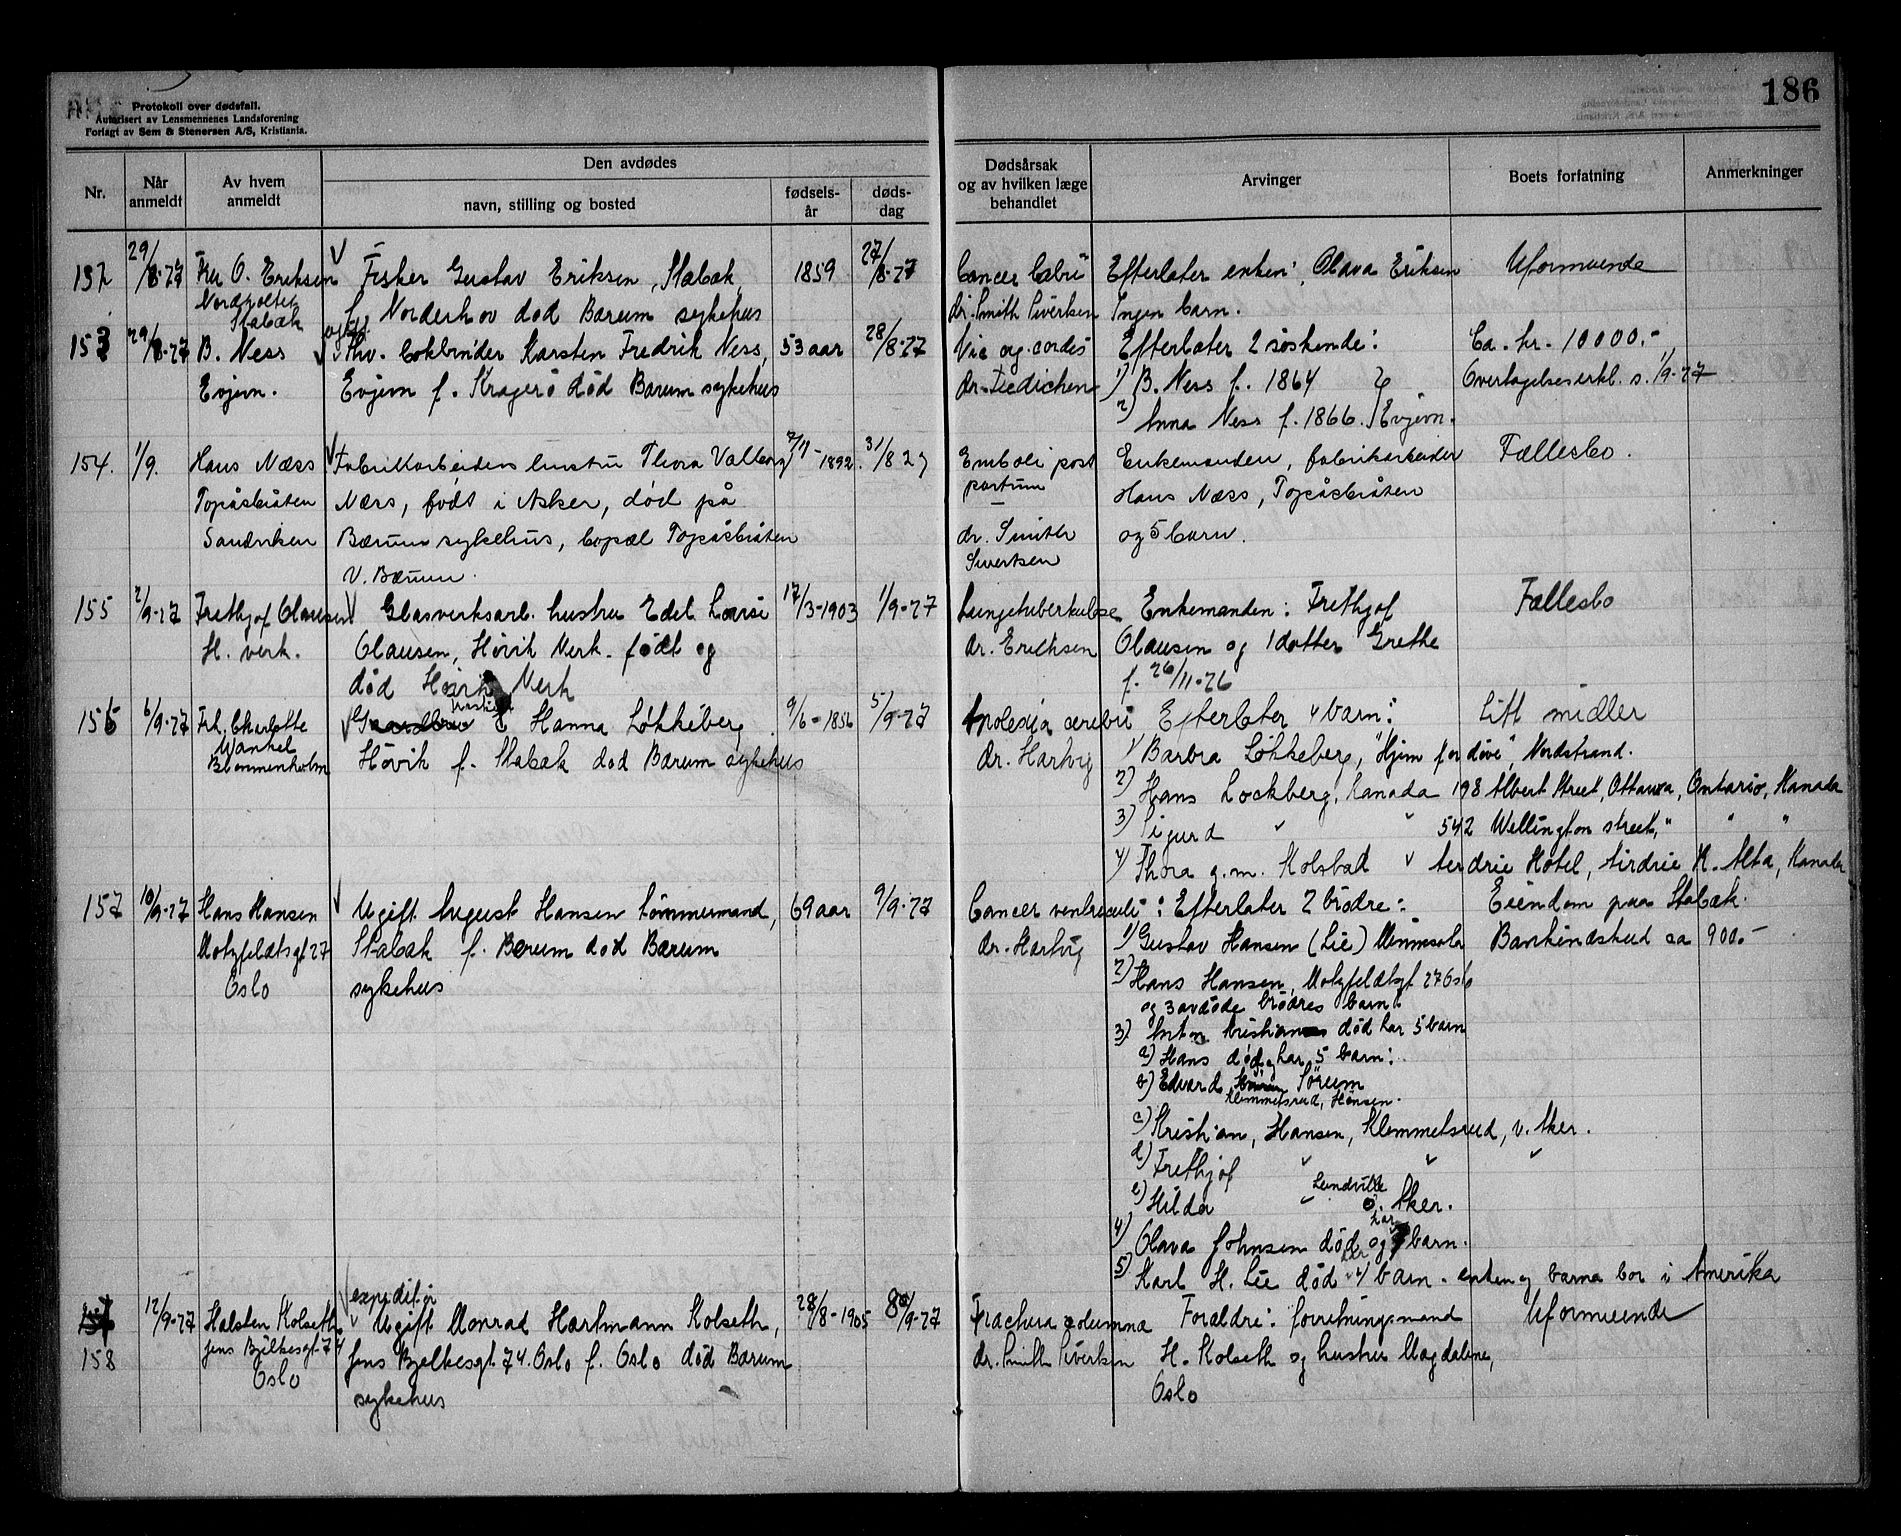 186
Protokoll over dødsfall.
Autorisert av Lensmennenes Landsforening
Forlagt av Sem & Stenersen A/S, Kristiania.
Nr.
Når anmeldt
Av hvem anmeldt
Den avdødes
navn, stilling og bosted
fødsels-år
døds-dag
Dødsårsak
og av hvilken læge
behandlet
Arvinger
Boets forfatning
Anmerkninger
152 29/8-27 Fru O. Eriksen Fisker Gustav Eriksen, Stabæk, 1859 27/8-27 Cancer Uformuende
Efterlater enken: Olava Eriksen
Stabæk f. Norderhov død Bærum sykehus dr. Smith Sivertsen Ingen barn.
153 29/8-27 B. Ness ugift Hv. bokbinder Karsten Fredrik Ness, 53 aar 28/8-27 Vic org. cordis Efterlater 2 søskende: Ca. kr. 10000.-
Evjevn. Evjevn f. Kragerø død Bærum sykehus dr. Tiedichen 1) B. Ness f. 1864 Overtagelseserkl. s. 1/9-27
2) Anna Ness f. 1866. Evjevn.
154. 1/9. Hans Næss Fabrikkarbeiders hustru Thora Valborg 1892. 31/8 27 Emboli post Enkemanden, fabrikarbeider Fællesbo.
Topåsbråten Næss, født i Asker, død på partum Hans Næss, Topåsbråten
Sandviken Bærum sykehus, bopæl Topåsbråten dr. Smith og 5 barn.
V. Bærum. Sivertsen
155 2/9-27 Frethjof Olausen Glasverksarb. hustru Edel Lovise 17/3-1903 1/9-27 Lungetuberkulose Enkemanden: Frethjof Fællesbo
H. verk. Olausen, Høvik Verk. født og dr. Ericksen Olausen og 1 datter Grethe
død Høvik Verk f. 26/11-26
156 6/9-27 Frk. Charlotte Hanna Løkkeberg 9/6-1856 5/9-27 Apolexia cerebri Efterlater 4 barn: Litt midler
Wankel
Blommenholm Høvik f. Stabæk død Bærum sykehus dr. Hartvig 1) Barbra Løkkeberg, "Hjem for døve", Nordstrand.
2) Hans Lockberg, Kanada 198 Albert Street, Ottawa, Ontario, Kanada
3) Sigurd " " 542 Wellington street, " " "
4) Thora g.m. Kolstad " Airdrie Hotel, Airdrie Alta, Kanada
157 10/9-27 Hans Hansen Ugift August Hansen tømmermand, 69 aar 9/9-27 Cancer ventriculi Efterlater 2 brødre: Eiendom paa Stabæk.
Motzfeldtsgt 27 Stabæk f. Bærum død Bærum dr. Hartvig 1) Gustav Hansen (Lie) Bankindskud ca 900.-
Oslo sykehus 2) Hans Hansen, Motzfeldtsgt 27 Oslo
og 3 avdøde brødres barn:
3) Anton Kristian død har 5 barn
a) Hans død, har 5 barn:
b) Edvard Sørum
Klemmetsrud, Hansen.
c) Kristian, Hansen, Klemmetsrud, v. Aker.
d) Frethjof " " "
e) Hilda " Lundville ø. Aker.
4) Olava Johnsen død har barn.
5) Karl H. Lie død har 4 barn. enken og barna bor i Amerika
158 12/9-27 Halsten Kolseth expeditør Ugift Monrad Hartmann Kolseth, 28/8-1905 8/9-27 Fractura columna Forældre: forretningsmand Uformuende
Jens Bjelkesgt 74 Jens Bjelkesgt 74. Oslo f. Oslo død Bærum dr. Smith Sivertsen H. Kolseth og hustru Magdalene,
Oslo sykehus Oslo